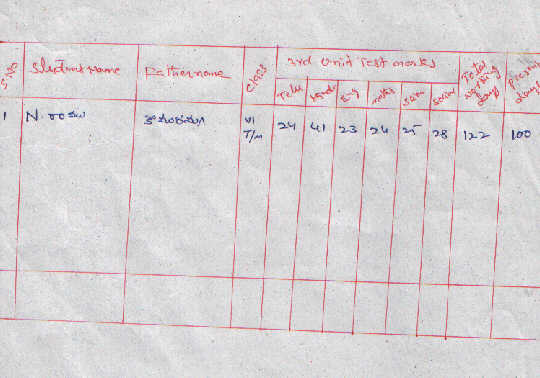 S.NO Student name Father name Class 3rd Unit Test marks Total working days Present days
Telu Hindi Eng maths Scien Socia
1 N. VI T/m 24 41 23 24 25 28 122 100